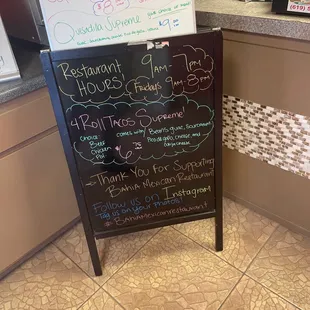 Quesadilla Supreme
$9.
(619)
Restaurant
Hours!
9AM - 7PM
Fridays 9AM - 8PM
4 Roll Tacos Supreme!
Choice comes with Beans, guac,
Beef
Chicken
$6.75
Potatoes, cheese, and
Thank You For Supporting
Bahia Mexican Restaurant
Follow us on Instagram
Tag us on your photos!
@Bahiamexicanrestaurant